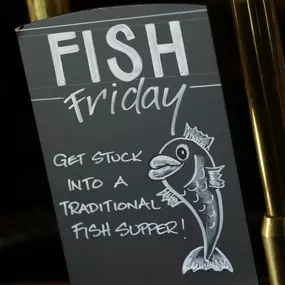 FISH
Friday
GET STUCK
INTO A
TRADITIONAL
FISH SUPPER!